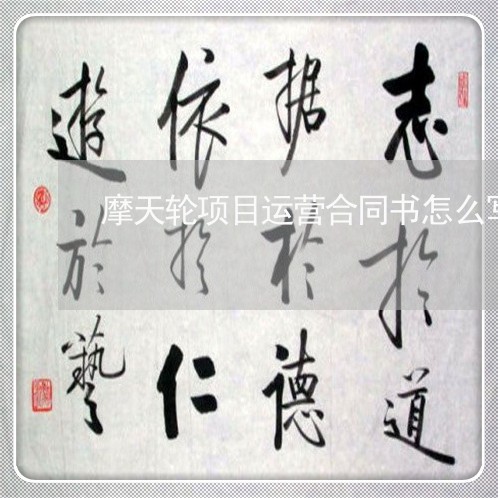 志於道
据於德
依於仁
遊於藝
摩天轮项目运营合同书怎么写